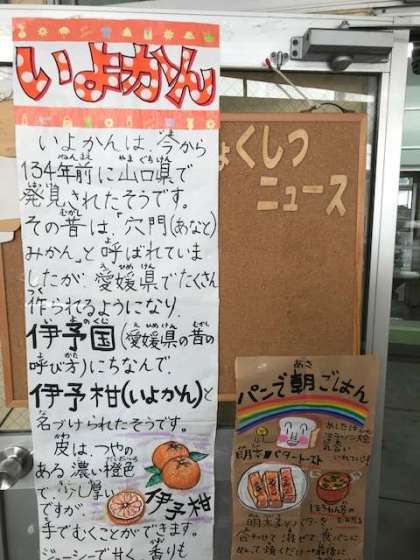 いよかん
いよかんは、今から
134年前に山口県で
発見されたそうです。
その昔は、「穴門(あなと)
みかん」と呼ばれていま
したが、愛媛県でたくさん
作られるようになり、
伊予国(愛媛県の昔の
呼び方)にちなんで、
伊予柑(いよかん)と
名づけられたそうです。
皮は、つやの
ある濃い橙色
で、少し厚い
ですが、
手でむくことができます。
ジューシーで甘く、香りも
伊予柑
ょくしつ
ニュース
パンで朝ごはん
明太バタートースト
明太子とバターを
合わせて混ぜて、食パンに